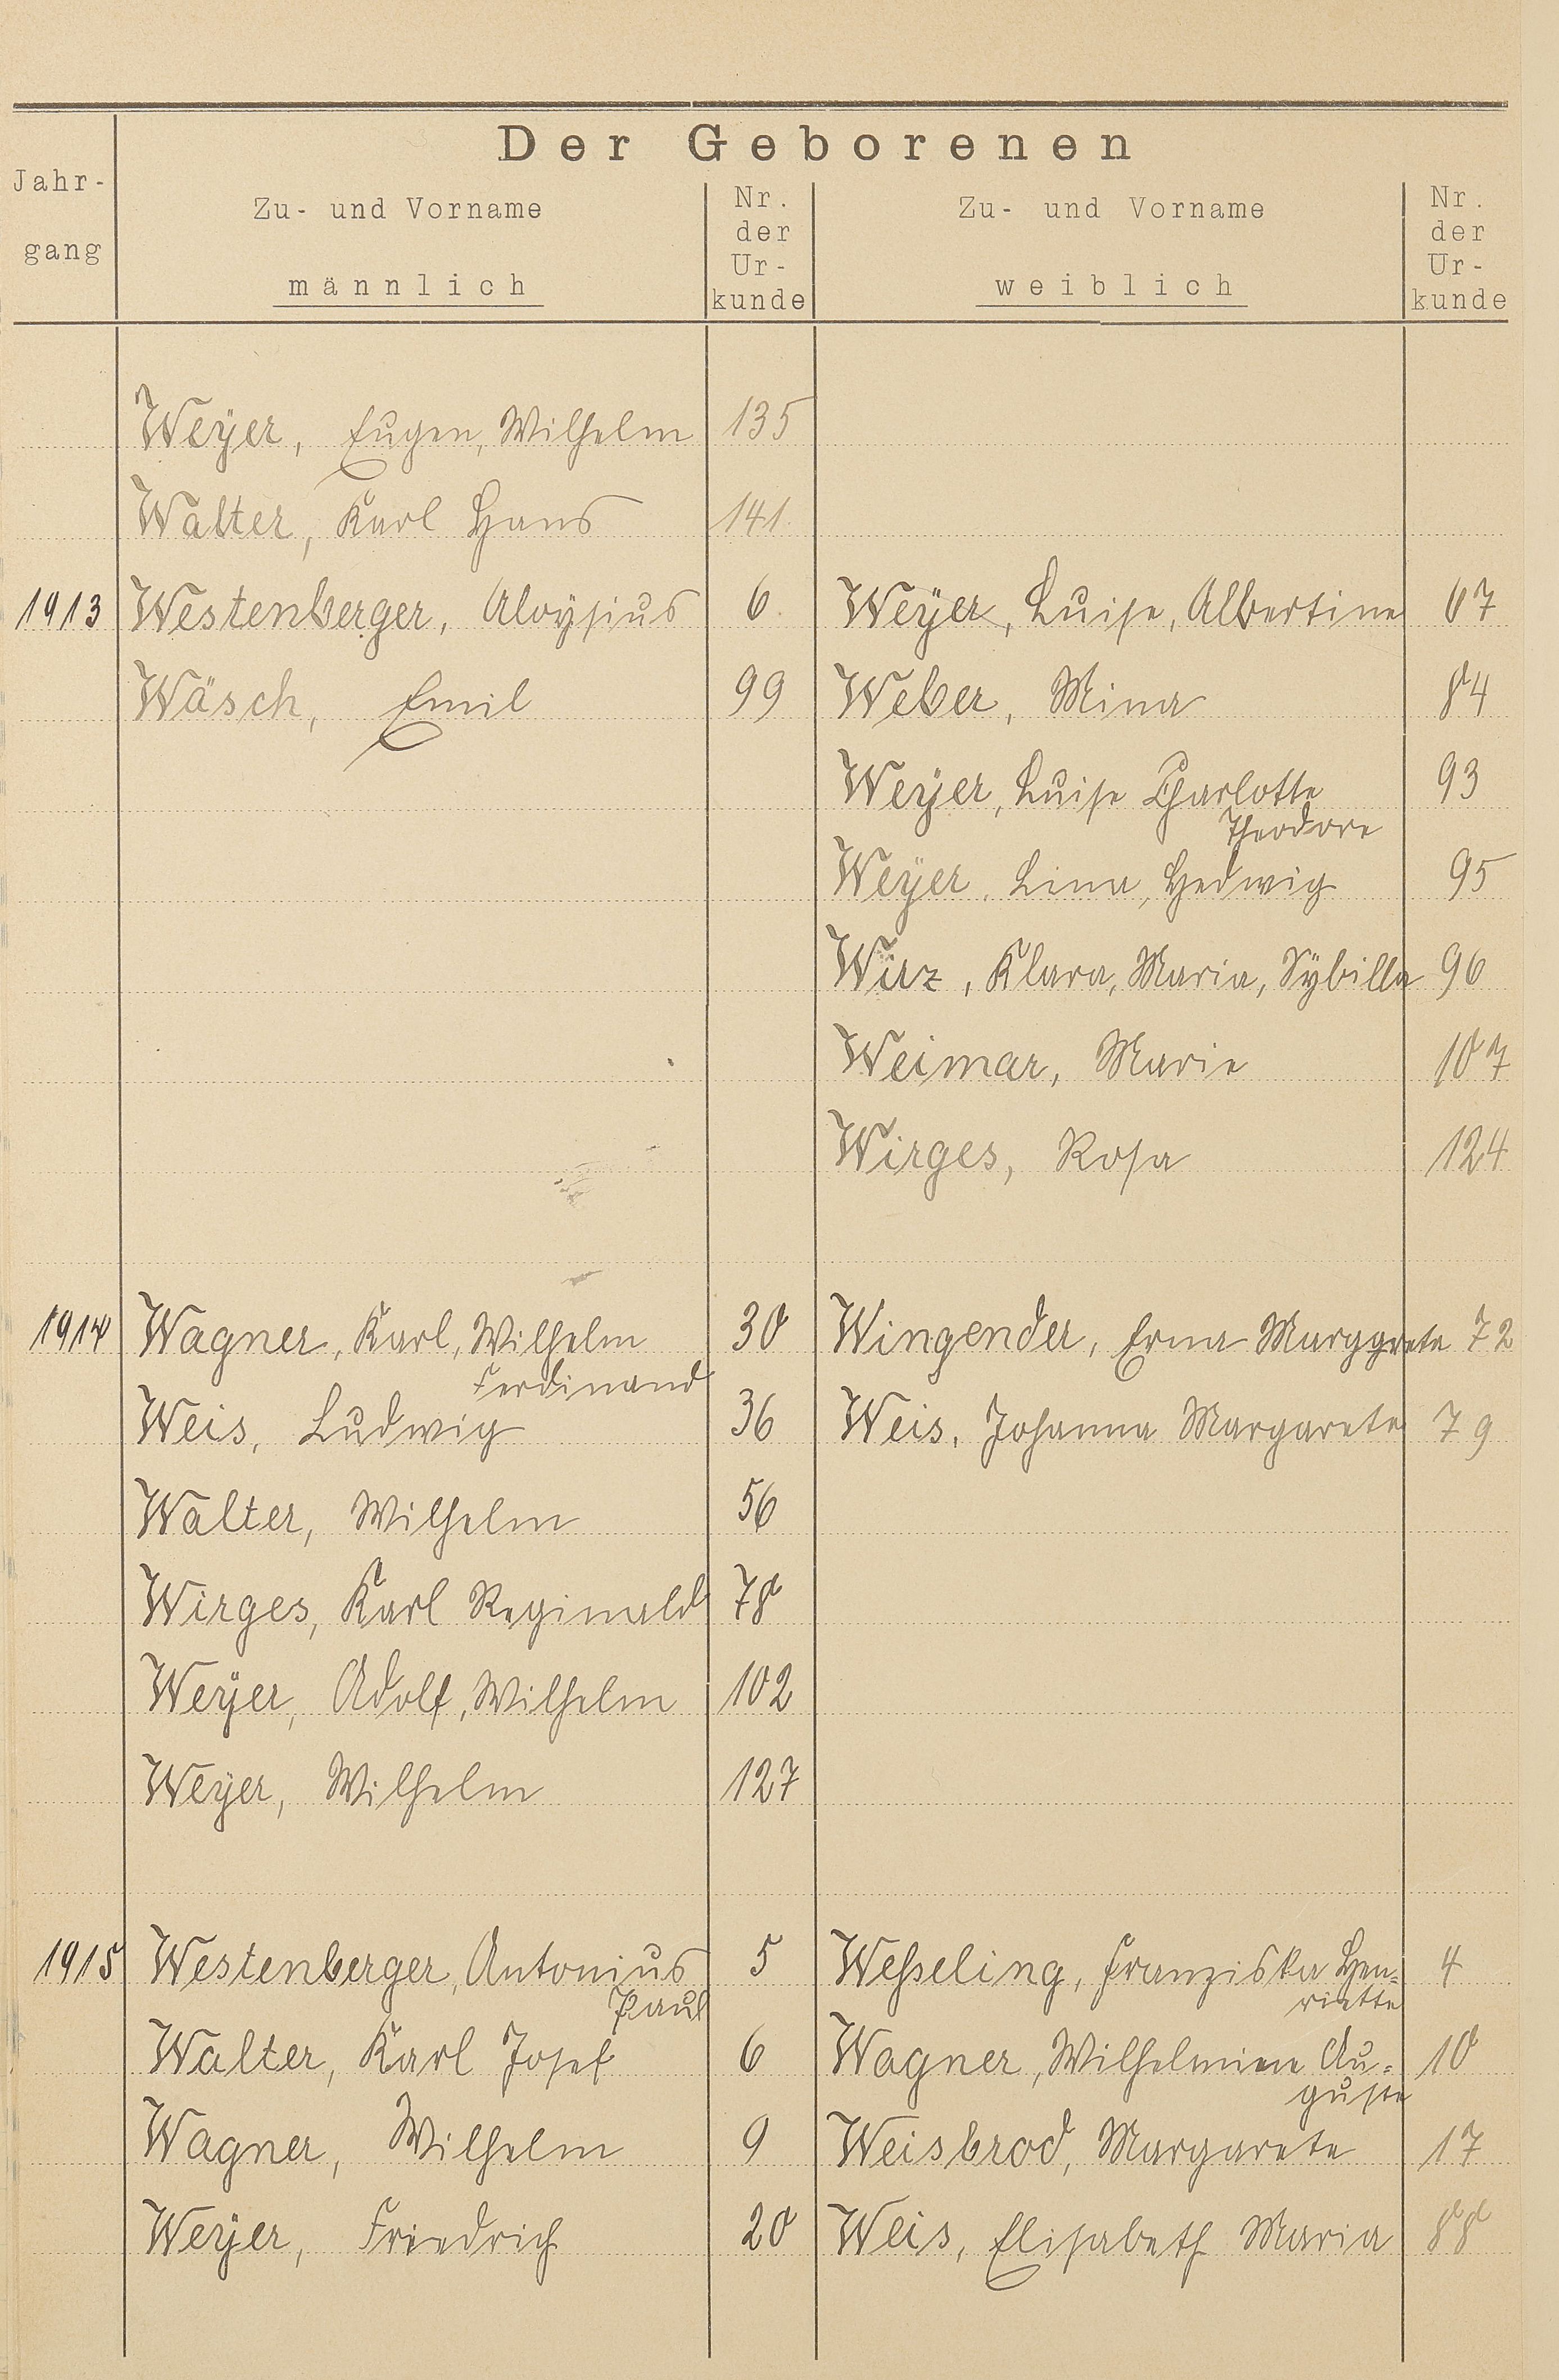 Der Geborenen
Jahr-
gang
Zu- und Vorname
männlich
Nr.
der
Ur-
kunde
Zu- und Vorname
weiblich
Nr.
der
Ur-
kunde
Weÿer, Eugen, Wilhelm 135
Walter, Karl Hans 141.
1913 Westenberger, Aloÿsius 6. Weÿer, Luise, Albertine 67
Wäsch, Emil 99 Weber, Mina 84
Weÿer, Luise Charlotte 93
Theodore
Weÿer, Lina, Hedwig 95
Wirz, Klara, Maria, Sÿbilla 96
Weimar, Marie 107
Wirges, Rosa 124
1914 Wagner, Karl, Wilhelm 30 Wingender, Erna Margarete 72
Ferdinand
Weis, Ludwig 36 Weis, Johanna Margarete 79
Walter, Wilhelm 56
Wirges, Karl Reginald 78
Weÿer, Adolf, Wilhelm 102
Weÿer, Wilhelm 127
1915 Westenberger, Antonius 5 Weßeling, Franziska Hen= 4
Paul riette
Walter, Karl Josef 6 Wagner, Wilhelmine Au= 10
guste
Wagner, Wilhelm 9 Weisbrod, Margarete 17
Weÿer, Friedrich 20 Weis, Elisabeth Maria 88